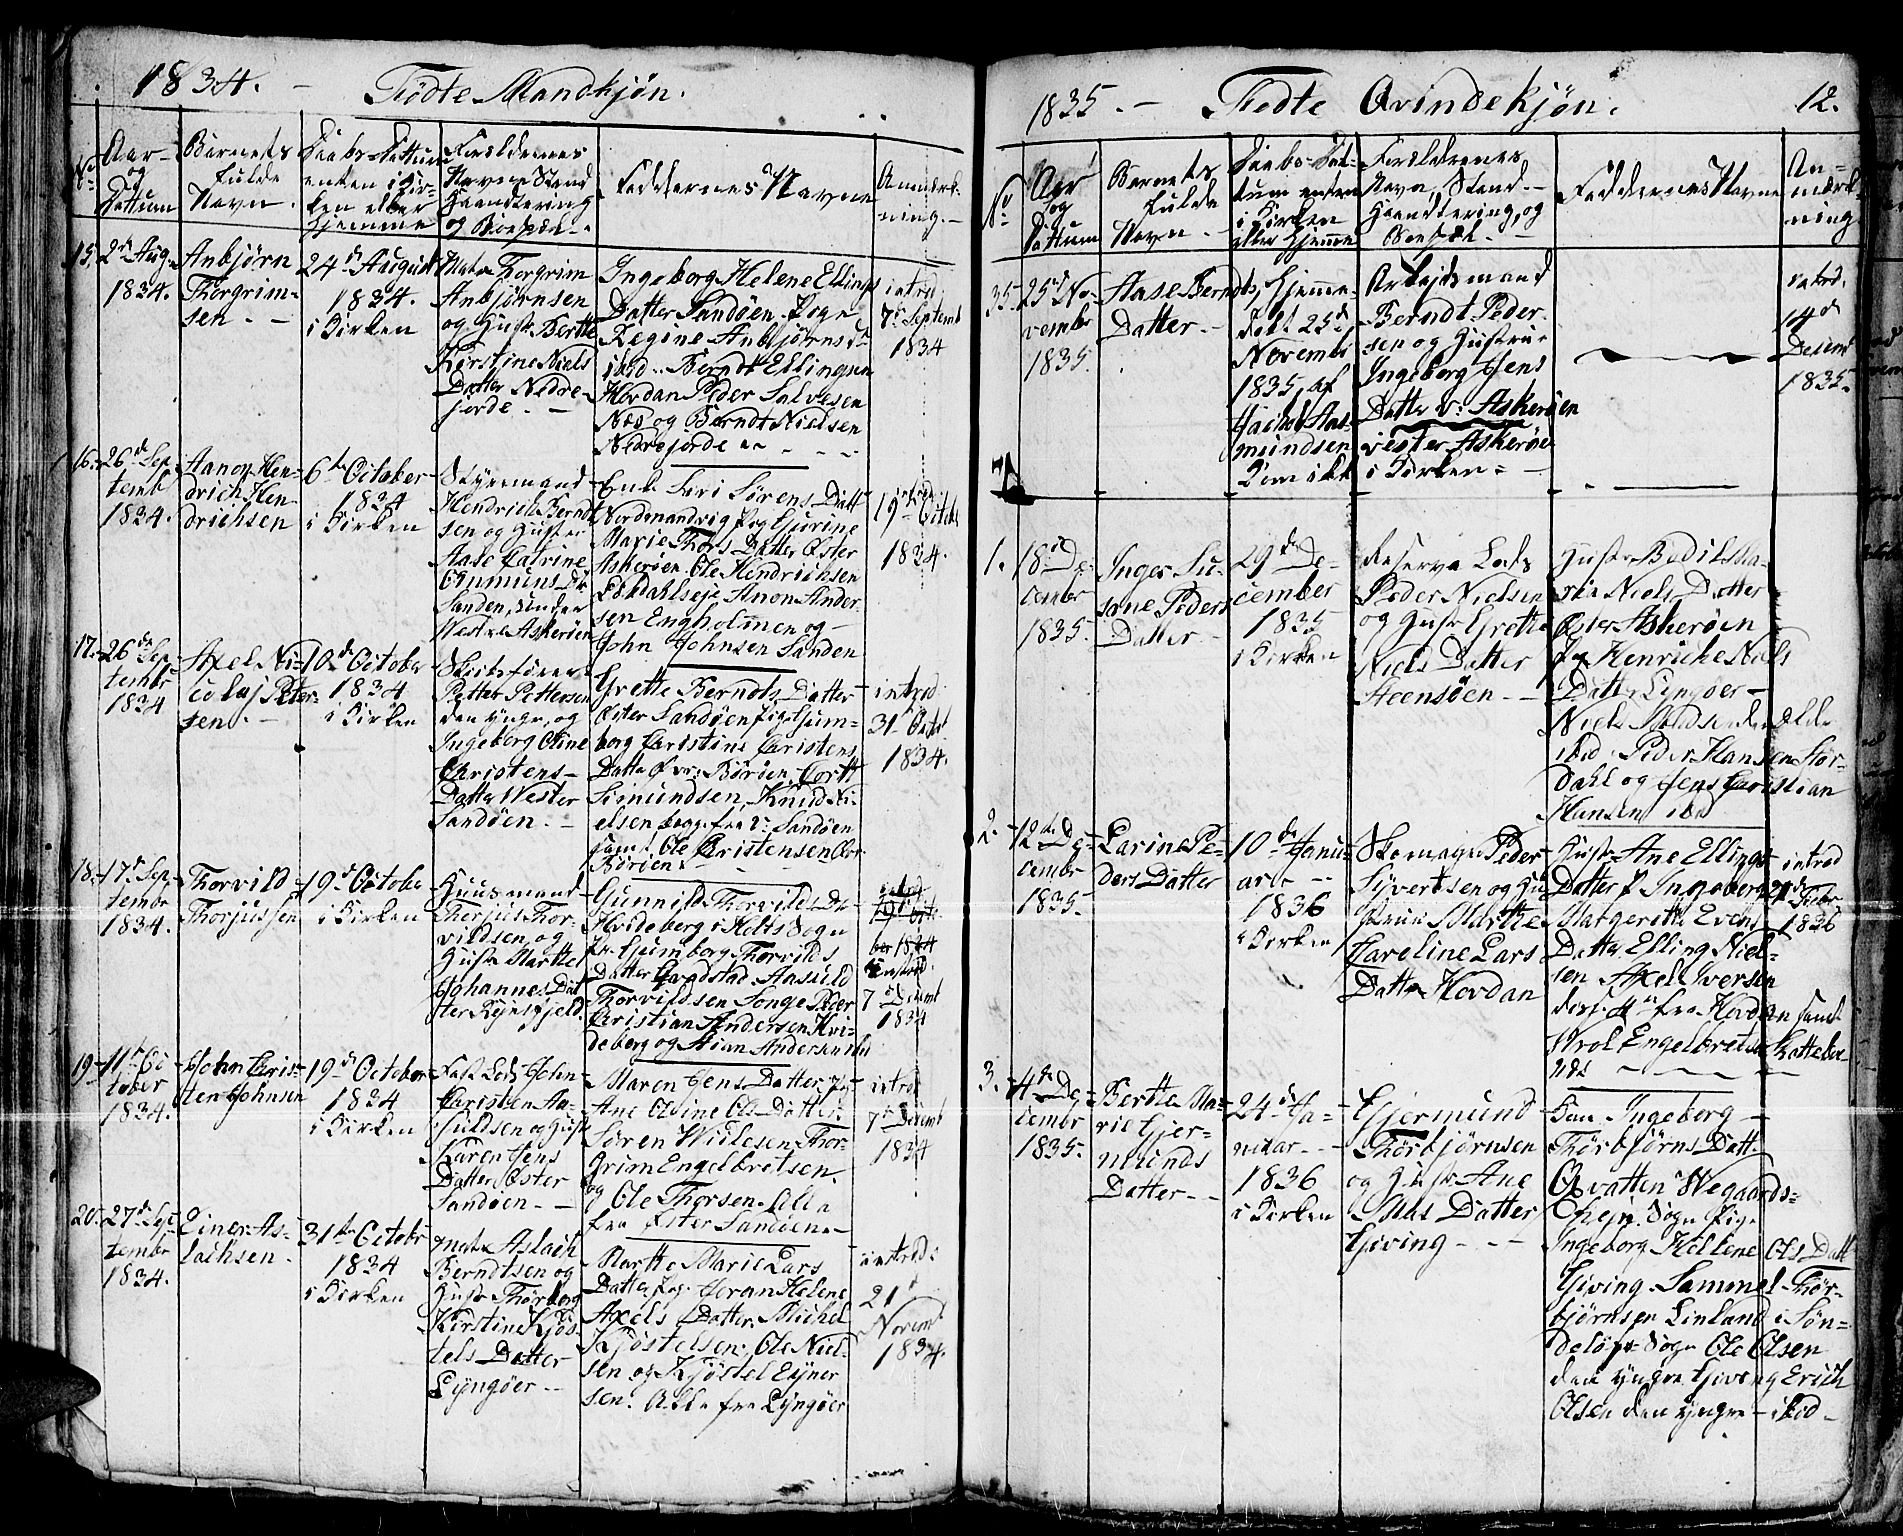 1834. - Fødte Mandkjøn.
No
Aar og Dattum
Barnets fulde Navn.
Daabs-Dattum enten i Kirken eller hjemme
Forældrenes Navn Stand Haandtering og Boepæl.
Faddernes Navne
Anmærkning.
15.
2den Aug.
1834.
Anbjørn
Thorgrim-
sen
24de August
1834.
i Kirken
Thorgrim
Anbjørnsen
og Hustr Berthe
Kirstine Niels
Datter Nedre-
fjorde.
Ingeborg Helene Ellings
Datter Sandøen Pige
Regine Anbjørns
ibid. Berndt Ellingsen
Hovdan Peder Salvesen
Næs og Berndt Nielsen
Nedrefjorde
introd
7de Septemb
1834
16.
26de Sep-
temb
1834.
Aanon Hen-
drich Hen-
drichsen
6te October
1834
i Kirken
Styrmand
Hendrich Berndt
sen og Hustru
Aase Catrine
Gunmuns Dtr
Sanden, under
Westre Askerøen
Enke Siri Sørens Datt
Nordmandvig Pig Gjurine
Marie Thors Datter Øster
Askerøen. Ole Hendrichsen
Anon Ander-
sen Engholmen og
John Johnsen Sanden
introd
19de Octob
1834.
17.
26de Sep-
tembr
1834
Axel Ni-
colaj Peter-
sen.
10de October
1834
i Kirken
Skibsfører
Petter Pettersen
den yngre, og
Ingeborg Oline
Christens
Datter Wester
Sandøen.
Grette Berndts Datter
Øster Sandøen Pige Gum-
borg Christine Christens
Datter Øvre Børøen, Cortt
Simundsen, Knud Ni-
elsen begge fra Sandøen
samt Ole Christensen
Børøen
introd
31 Octob
1834.
18.
17de Sep-
tembr
1834.
Thorvild
Thorjussen
19de October
i Kirken
Huusmand
Thorjus Thor-
vildsen og
Hustr Marthe
Johannes Dat-
ter Røinsfjeld.
Gunnild Thorvilds
Hvideberg i Holts Sogn
Pr Gumborg Thorvilds
Datter Grodstad Aasuld
Thorvildsen Songe Peder
Christian Andersen Hvi-
deberg og Stian Andersen ibd
introd
7de Decemb
1834
19.
11te Oc
tober
1834.
John Chris-
ten Johnsen
19de October
1834
i Kirken
Fast Lods John
Christen Aa-
suldsen og Hustr
Karen Jens
Datter Øster
Sandøen
Maren Jens Datter, Pig
Ane Olsine Ols Datter
Søren Willesen Thor-
grim Engelbretsen
og Ole Thorsen. Alle
fra Øster Sandøen
introd
7de Decemb
1834
20.
27de Sep-
tembr
1834.
Einer As-
lachsen.
31te October
1834
i Kirken
Aslach
Berndtsen og
Hustr Thorborg
Kirstine Kjøs-
tels Datter
Lyngøer
Marthe Marie Lars
Datter, Pig. Joran Helene
Axels Datter. Michel
Kjøstelsen. Ole Niel-
sen og Kjøstel Eyner
sen. Alle fra Lyngøer
introd
21de
Novemb
1834.
1835. - Fødte Qvindekjøn. 12.
No
Aar og Dattum
Barnets fulde Navn.
Daabs-Dattum enten i Kirken eller hjemme
Forældrenes Navn, Stand Haandtering, og Boepæl.
Faddernes Navne
Anmærkning
35.
25de No-
vembr
1835.
Aase Berndts
Datter
Hjemme
døbt 25de
Novemb
1835, af
Jachob Aas-
mundsen
Kom ikke
Arbejdsmand
Berndt Peder-
sen og Hustrue
Ingeborg Jens
Datter v. Askerøen
vester Askerøe
i Kirken
introd.
14de
Decemb
1835.
1.
18de De-
cembr
1835.
Inger Su-
sane Peders
Datter
29de De-
cember
1835
i Kirken
Reserve Lods
Peder Nielsen
og Hustr Grethe
Niels Datter
Steensøen
Hustr Bodil Ma-
ria Niels Datter
Øster Askerøen
Pg Henriche Niels
Datter Lyngøer
Niels Madsen den ælde
ibid. Peder Hansen Stør-
dahl og Jens Christian
Hansen ibd
2.
12te De-
cembr
1835.
Larine Pe-
ders Datter
10de Janu-
ar
1836
i Kirken
Skomager Peder
Syvertsen og Hu-
strue Marthe
Karoline Lars
Datter Hovdan
Hustr Ane Ellings
Datter P Ingeborg
Margerethe Evens
Datter Elling Niel-
sen Axel Iversen
fra Hovdan samt
Wrol Engelbretsen
introd
21de Febr
1836
3.
4de De-
cembr
1835.
Berthe Ma-
rie Gjer-
munds
Datter
24de Ja-
nuar
1836
i Kirken
Gjermund
Thorbjørnsen
og Hustr Ane
Mas Datter
Giving
Kone Ingeborg
Thorbjørns Datt.
Qvatten Wegaards-
Sogn Pige
Ingeborg Hellene Ols Datt
Giving Sammel Thor-
bjørnsen Linland i Søn-
deløvs Sogn Ole Olsen
den yngre Giving Erich
Olsen den yngre ibid